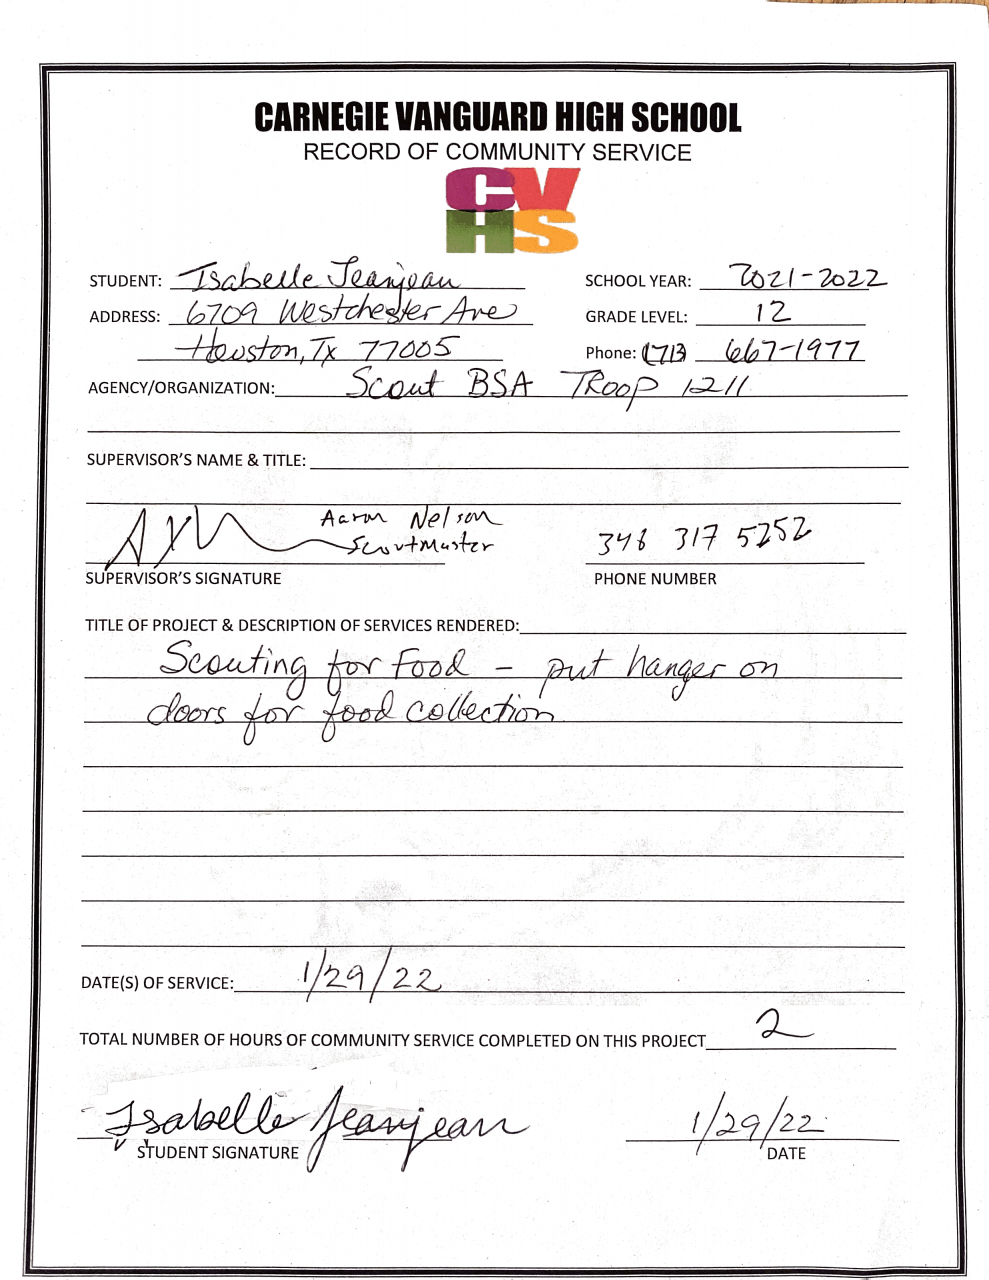 CARNEGIE VANGUARD HIGH SCHOOL
RECORD OF COMMUNITY SERVICE
CV
HS
STUDENT: Isabelle Jeanjean SCHOOL YEAR: 2021-2022
ADDRESS: 6709 Westchester Ave GRADE LEVEL: 12
Houston, Tx 77005 Phone: (713) 667-1977
AGENCY/ORGANIZATION: Scout BSA TROOP 1211
SUPERVISOR'S NAME & TITLE:
Aaron Nelson
Scoutmaster 346 317 5252
SUPERVISOR'S SIGNATURE PHONE NUMBER
TITLE OF PROJECT & DESCRIPTION OF SERVICES RENDERED:
Scouting for Food – put hanger on
doors for food collection
DATE(S) OF SERVICE: 1/29/22
TOTAL NUMBER OF HOURS OF COMMUNITY SERVICE COMPLETED ON THIS PROJECT 2
Isabelle Jeanjean 1/29/22
STUDENT SIGNATURE DATE